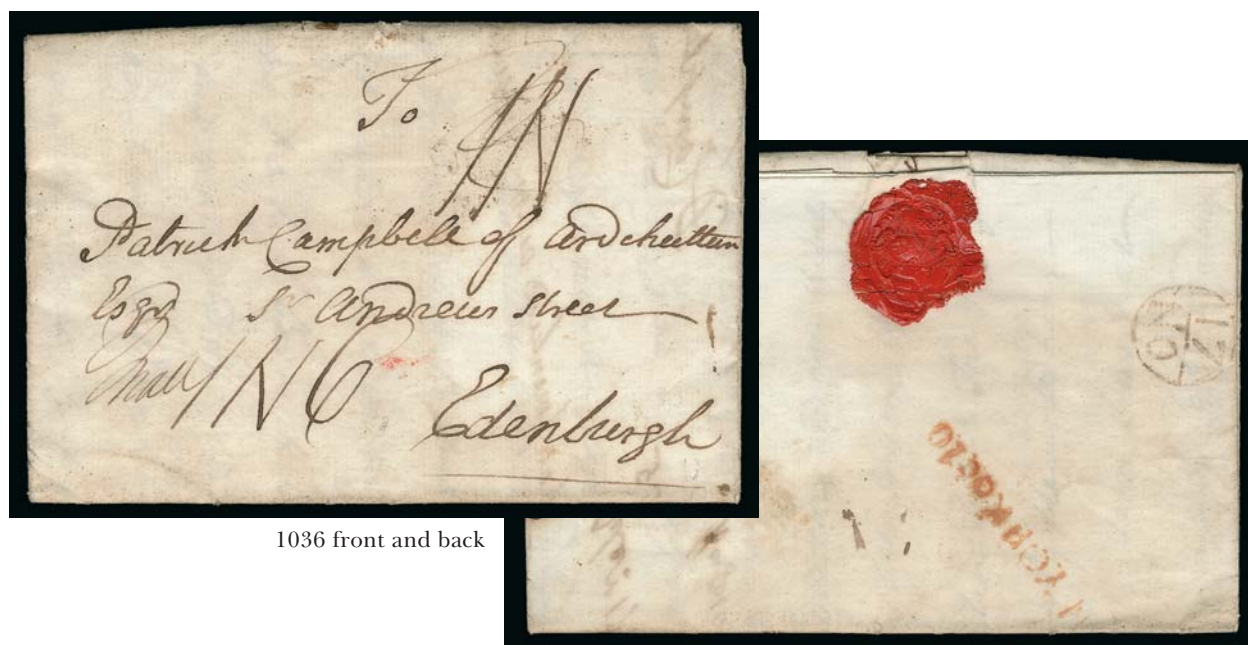 To
Patrick Campbell of Ardchattan
Esqr St Andrews Street
1N6
Edenburgh
1036 front and back
N YORK